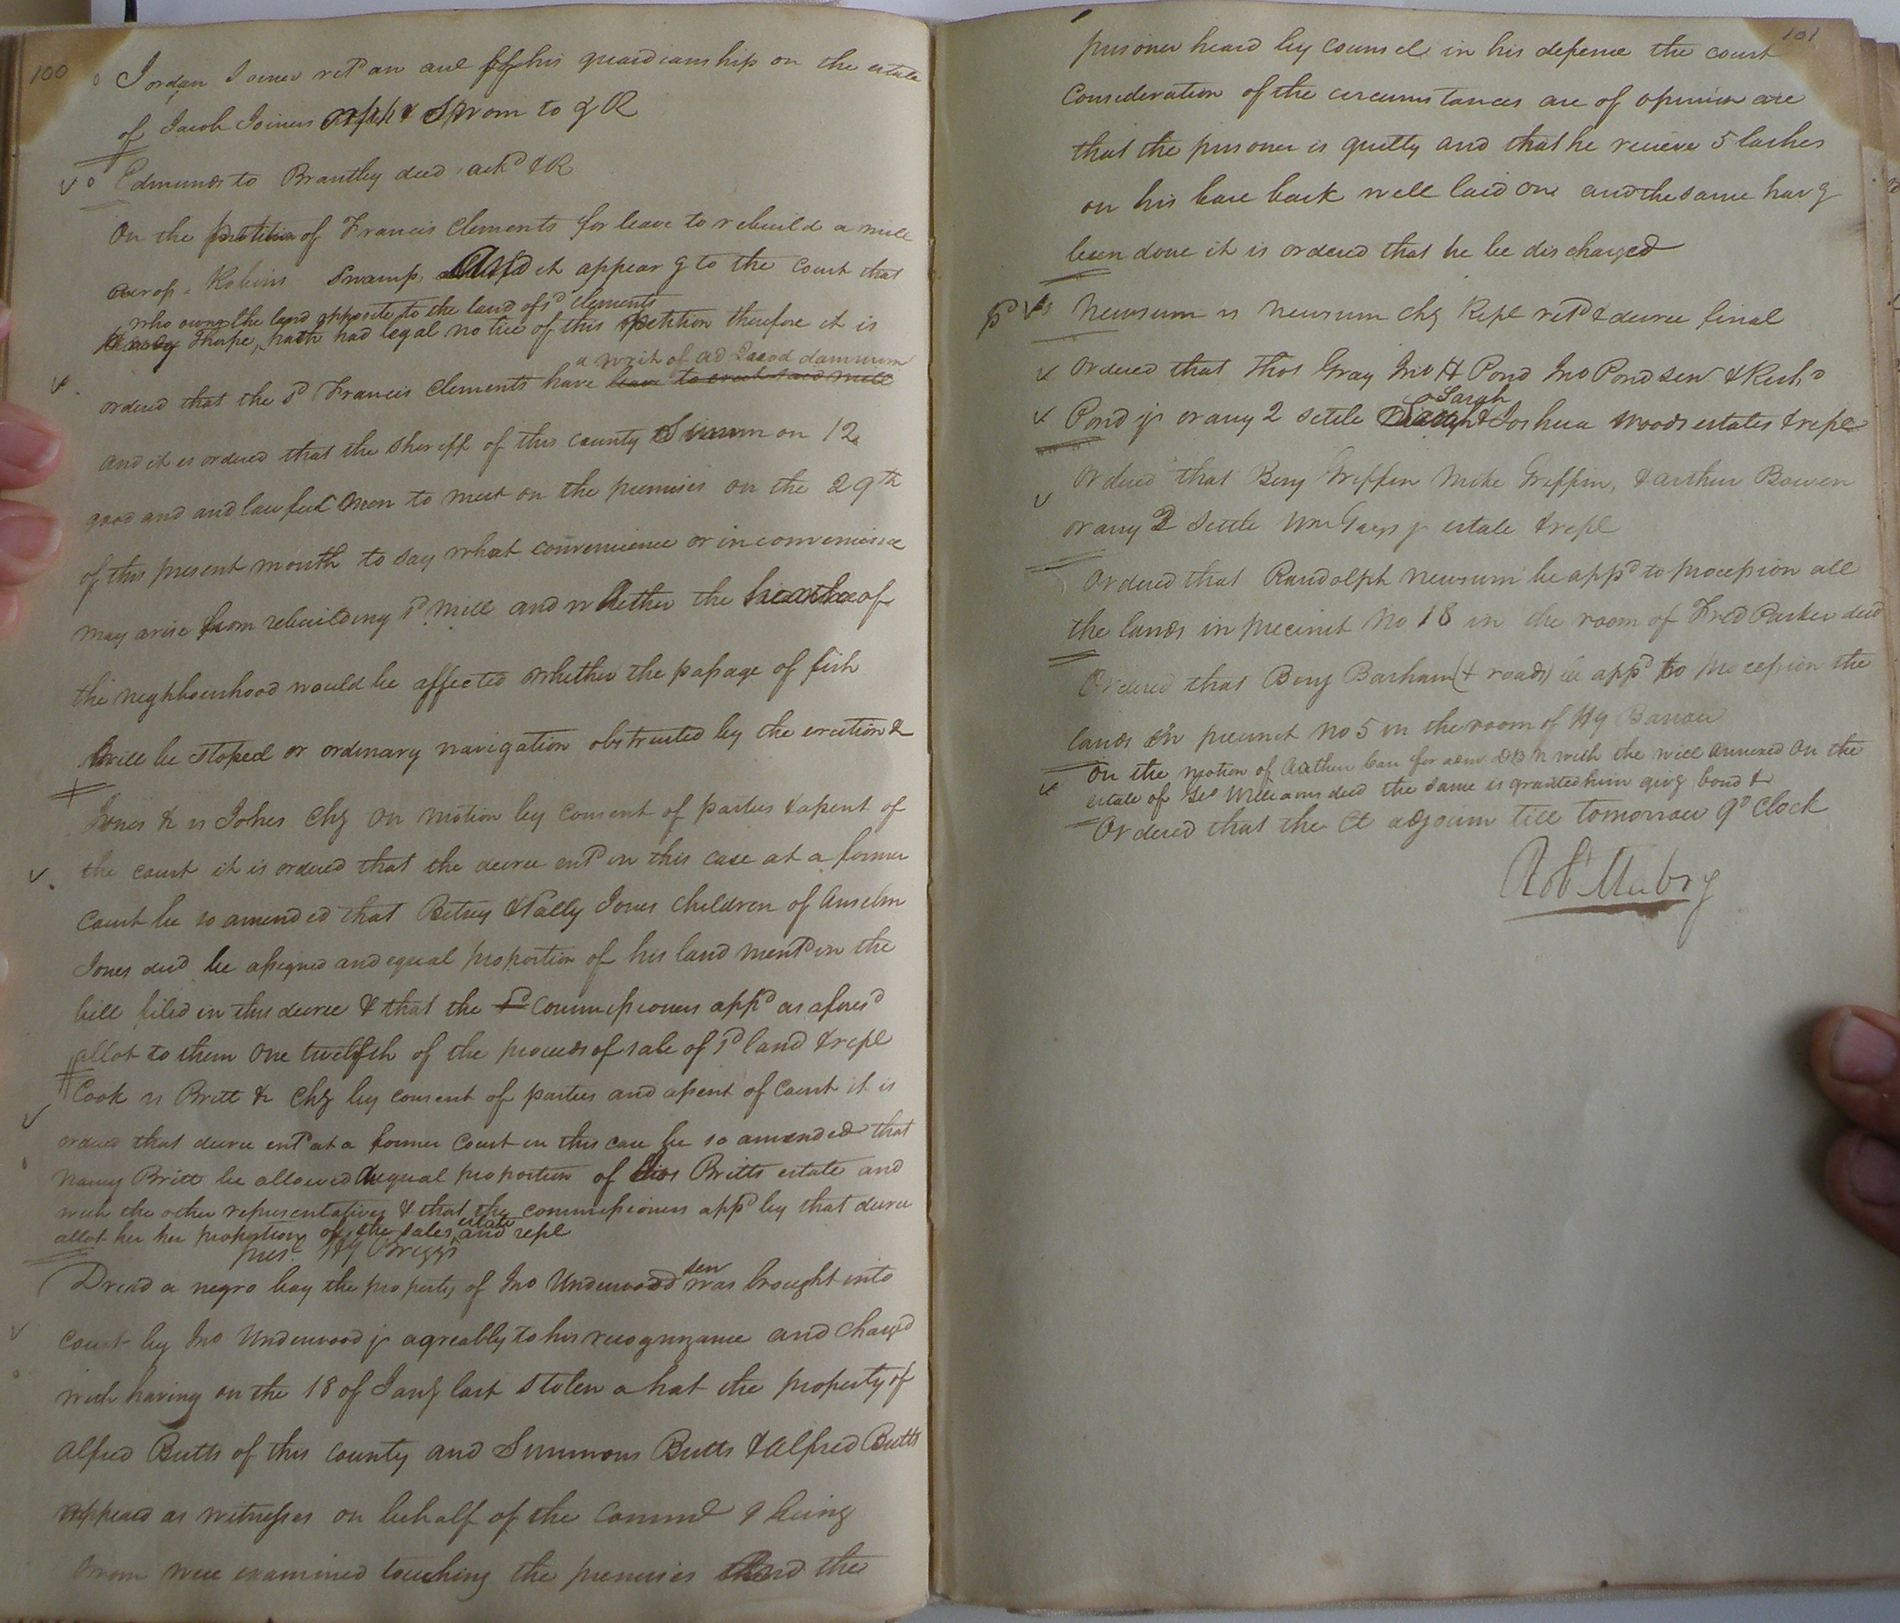 100
Jordan Joiner retd an acct of his guardianship on the estate
of Jacob Joiners Sworn to & R
Edmunds to Brantley deed ackd & R
On the petition of Francis Clements for leave to rebuild a mill
across Robins Swamp And it appearg to the court that
who owns the land opposite to the land of sd Clements
Thorpe, hath had legal notice of this petition therefore it is
a writ of ad quod damnum
ordered that the sd Francis Clements have leave to erect said mill
and it is ordered that the sheriff of this county Summon on 12
good and and lawful men to meet on the premises on the 29th
of this present month to say what convenience or inconvenience
may arise from rebuilding sd mill and whether the health of
the neghbourhood would be affected whether the passage of fish
will be stoped or ordinary navigation obstructed by the erection &
Jones &c vs Jones Chy On motion by consent of parties & assent of
the court it is ordered that the decree entd in this case at a former
Court be so amended that Betsey & Sally Jones children of Anselm
Jones decd be assigned and equal proportion of his land mentd in the
bill filed in this decree & that the sd Commissioners appd as aforesd
allot to them one twelfth of the proceeds of sale of sd land & repl
Cook vs Britt &c Chy by consent of parties and assent of Court it is
ordered that decree entd at a former Court in this case be so amended that
Nancy Britt be allowed equal proportion of Britts estate and
with the other representatives & that the commissioners appd by that decree
estate
allot her her proportion of the sales and repl
pres. Hy Briggs
sen
Dred a negro boy the property of Jno Underwood was brought into
court by Jno Underwood jr agreably to his recognizance and charged
with having on the 18 of Jany last stolen a hat the property of
Alfred Butts of this county and Simmons Butts & Alfred Butts
appeard as witnesses on behalf of the Commd & being
sworn were examined touching the premises and the
101
prisoner heard by counsel in his defence the court
Consideration of the circumstances are of opinion are
that the prisoner is guilty and that he recieve 5 lashes
on his bare back well laid on and the same havg
been done it is ordered that he be discharged
Newsum vs Newsum Chy Repl retd & decree final
Ordered that Thos Gray Jno H Pond Jno Pond sen & Richd
Sarah
Pond jr or any 2 settle & Joshua Woods estates & repl
Ordered that Benj Griffin Mike Griffin, & Arthur Bowen
or any 2 settle Wm Grays jr estate & repl
Ordered that Randolph Newsum be appd to procession all
the lands in precinct No 18 in the room of Fred Parker decd
Ordered that Benj Barham (& roads) be appd to procession the
lands in precinct No 5 in the room of Hy Barrow
On the motion of Arthur for adm DBN with the will annexed on the
estate of Williams decd the same is granted him givg bond &
Ordered that the Ct adjourn till tomorrow 9 oClock
Robt Mabry